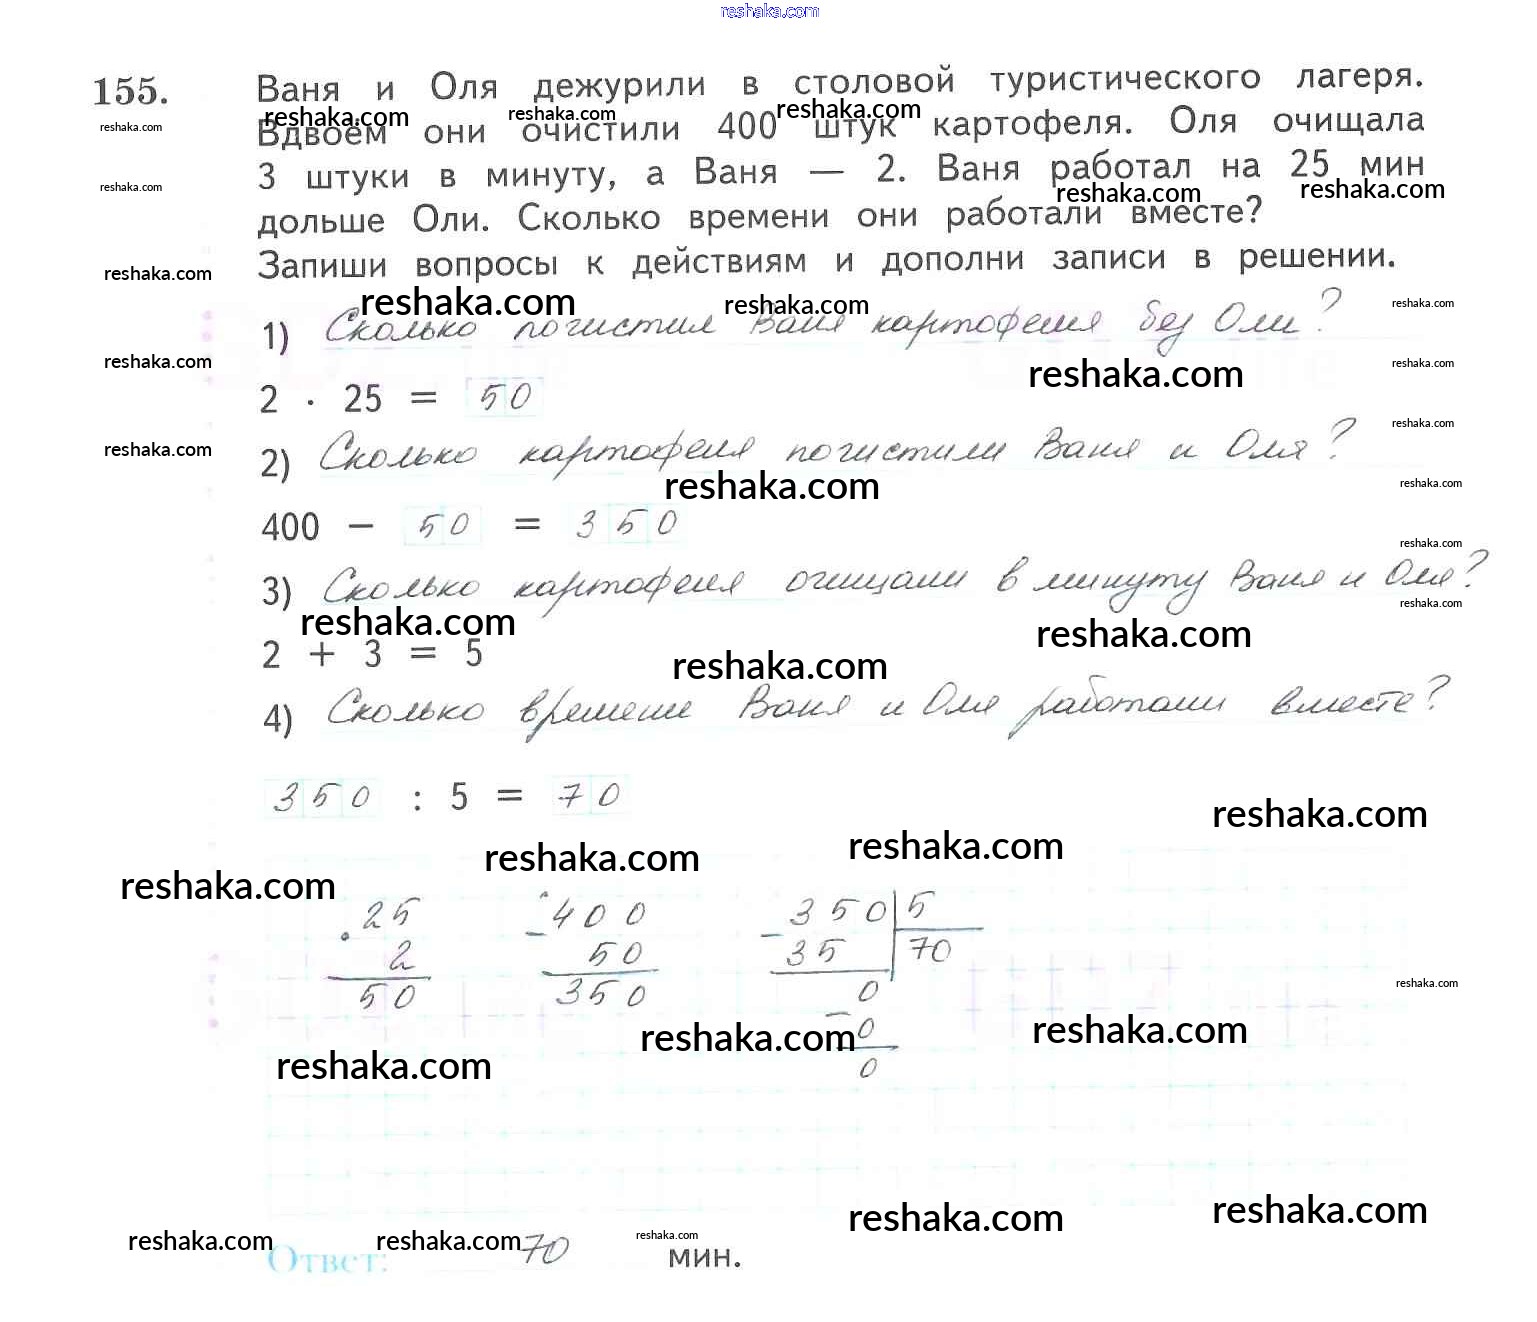 reshaka.com
155. Ваня и Оля дежурили в столовой туристического лагеря.
reshaka.com reshaka.com reshaka.com
reshaka.com Вдвоём они очистили 400 штук картофеля. Оля очищала
3 штуки в минуту, а Ваня — 2. Ваня работал на 25 мин
reshaka.com reshaka.com reshaka.com
дольше Оли. Сколько времени они работали вместе?
Запиши вопросы к действиям и дополни записи в решении.
reshaka.com
reshaka.com reshaka.com reshaka.com
1) Сколько почистил Ваня картофеля без Оли?
reshaka.com reshaka.com reshaka.com
2 · 25 = 50
reshaka.com
2) Сколько картофеля почистили Ваня и Оля?
reshaka.com
reshaka.com reshaka.com
400 − 50 = 350
reshaka.com
3) Сколько картофеля очищали в минуту Ваня и Оля?
reshaka.com
reshaka.com reshaka.com
2 + 3 = 5
reshaka.com
4) Сколько времени Ваня и Оля работали вместе?
350 : 5 = 70
reshaka.com
reshaka.com reshaka.com
reshaka.com
· 25 - 400 - 350 5
2 50 35 70
50 350 0
reshaka.com
reshaka.com 0 reshaka.com
reshaka.com 0
reshaka.com reshaka.com
reshaka.com reshaka.com reshaka.com
Ответ: 70 мин.